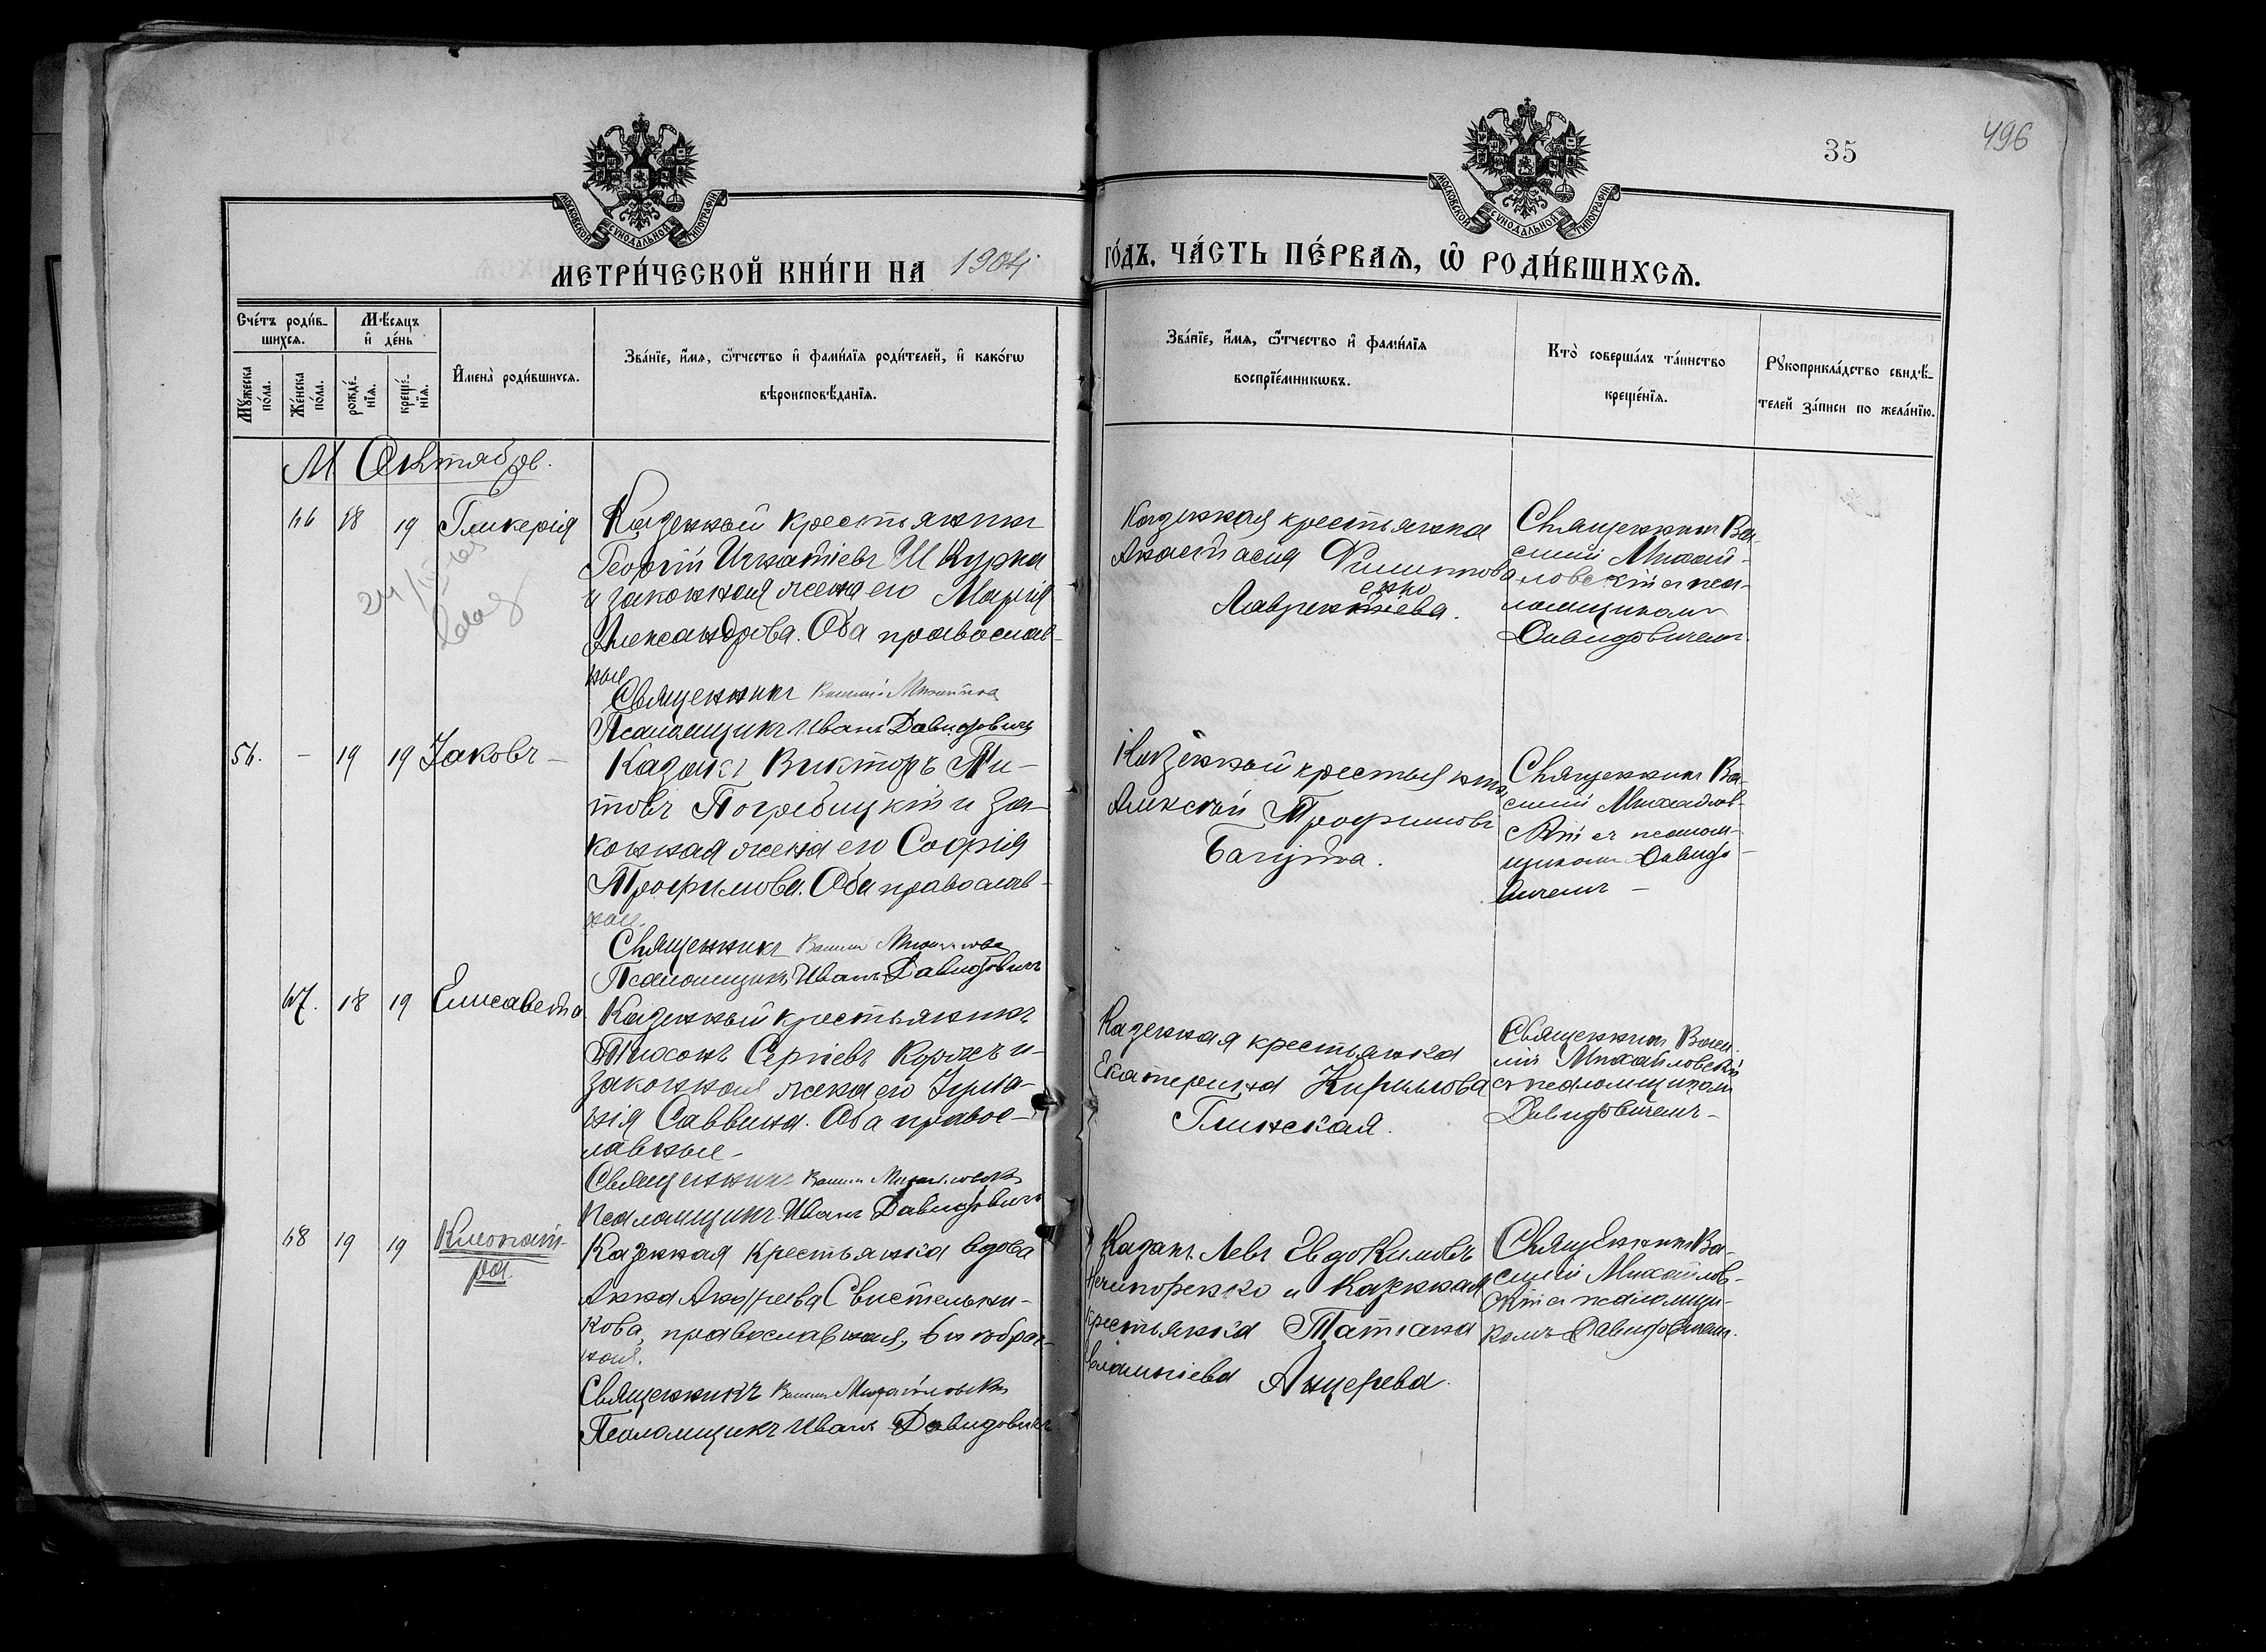 35
496
МОСКОВСКОЙ СѴНОДАЛЬНОЙ ТИПОГРАФІИ
МОСКОВСКОЙ СѴНОДАЛЬНОЙ ТИПОГРАФІИ
МЕТРИ́ЧЕСКОЙ КНИ́ГИ НА 1904
ГО́ДЪ, ЧА́СТЬ ПЕ́РВАѦ, Ѽ РОДИ́ВШИХСѦ.
Сче́тъ роди́в-
шихсѧ.
Мѣ́сяцъ
и҆ де́нь
Мꙋ́жеска
по́ла.
Же́нска
по́ла.
рожде́-
нїѧ.
креще́-
нїѧ.
И҆мена̀ роди́вшихсѧ.
Зва́нїе, и҆́мѧ, ѻ҆́тчество и҆ фами́лїѧ роди́телей, и҆ како́гѡ
вѣроисповѣ́данїѧ.
Зва́нїе, и҆́мѧ, ѻ҆́тчество и҆ фами́лїѧ
воспрїе́мникѡвъ.
Кто̀ соверша́лъ та́инство
креще́нїѧ.
Рꙋкоприкла́дство свидѣ́-
телей за́писи по жела́нїю.
М Октябрь.
66 18 19 Гликерія
Казенный крестьянинъ
Георгій Игнатіевъ Шкурка
и законная жена его Марія
Александрова. Оба православ-
ные
Священникъ Василій
Псаломщикъ Иванъ Давидовичъ
Казенная крестьянка
Анастасія Филиппова
енко
Лаврентіева.
Священникъ Ва-
силій Михай-
ловскій съ пса-
ломщикомъ
Давидовичемъ.
56. – 19 19 Іаковъ –
Казакъ Викторъ Ти-
товъ Погребицкій и за-
конная жена его Софія
Трофимова. Оба православ-
ные.
Священникъ Василій
Псаломщикъ Иванъ Давидовичъ
Казенный крестьянинъ
Алексѣй Трофимовъ
Священникъ Ва-
силій Михайлов-
скій съ псалом-
щикомъ Давидо-
вичемъ –
67. 18 19 Елисавета
Казенный крестьянинъ
Тихонъ Сергіевъ Коржъ и
законная жена его Іулі-
анія Саввина. Оба правос-
лавные –
Священникъ Василій Михайловскій
Псаломщикъ Иванъ Давидовичъ
Казенная крестьянка
Екатерина Кирилова
Глинская.
Священникъ Васи-
лій Михайловскій
съ псаломщикомъ
Давидовичемъ –
68 19 19 Клеопат-
ра.
Казенная крестьянка вдова
Анна Андреева Свистельни-
кова, православная, внѣбрач-
ная.
Священникъ Василій Михайловскій
Псаломщикъ Иванъ Давидовичъ
Казакъ Левъ Евдокимовъ
Нечипоренко и казенная
крестьянка Татіана
Анцерева.
Священникъ Ва-
силій Михайлов-
скій съ псаломщи-
комъ Давидовичемъ.